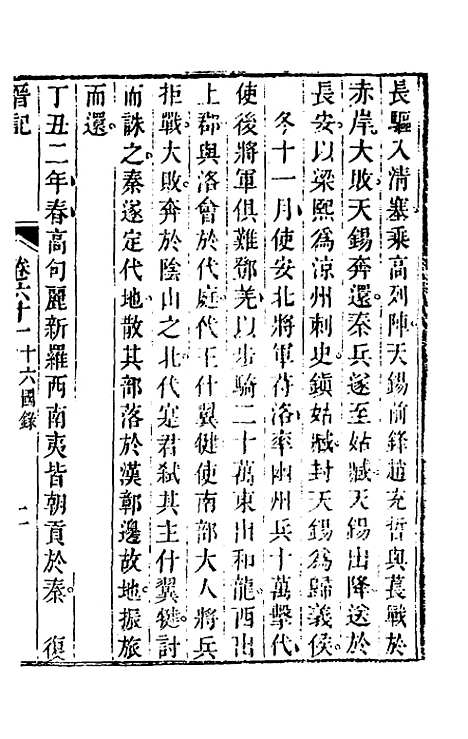 長驅入清塞乘高列陣天錫前鋒趙充哲與萇戰於
赤岸大敗天錫奔還秦兵遂至姑臧天錫出降送於
長安以梁熙爲涼州刺史鎭姑臧封天錫爲歸義侯
冬十一月使安北將軍苻洛率幽州兵十萬擊代
使後將軍俱難鄧羌以步騎二十萬東出和龍西出
上郡與洛會於代庭代王什翼健使南部大人將兵
拒戰大敗奔於陰山之北代寔君弑其主什翼犍討
而誅之秦遂定代地散其部落於漢鄣邊故地振旅
而還
丁丑二年春高句麗新羅西南夷皆朝貢於秦 復
晉記 卷六十一 十六國錄 二